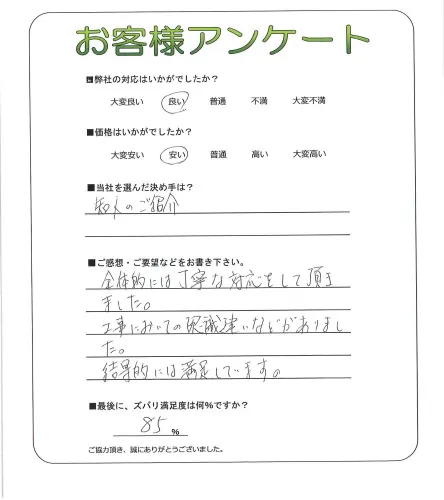 お客様アンケート
■弊社の対応はいかがでしたか？
大変良い 良い 普通 不満 大変不満
■価格はいかがでしたか？
大変安い 安い 普通 高い 大変高い
■当社を選んだ決め手は？
知人のご紹介
■ご感想・ご要望などをお書き下さい。
全体的には丁寧な対応をして頂き
ました。
工事においての認識違いなどがありまし
た。
結果的には満足しています。
■最後に、ズバリ満足度は何％ですか？
85 %
ご協力頂き、誠にありがとうございました。